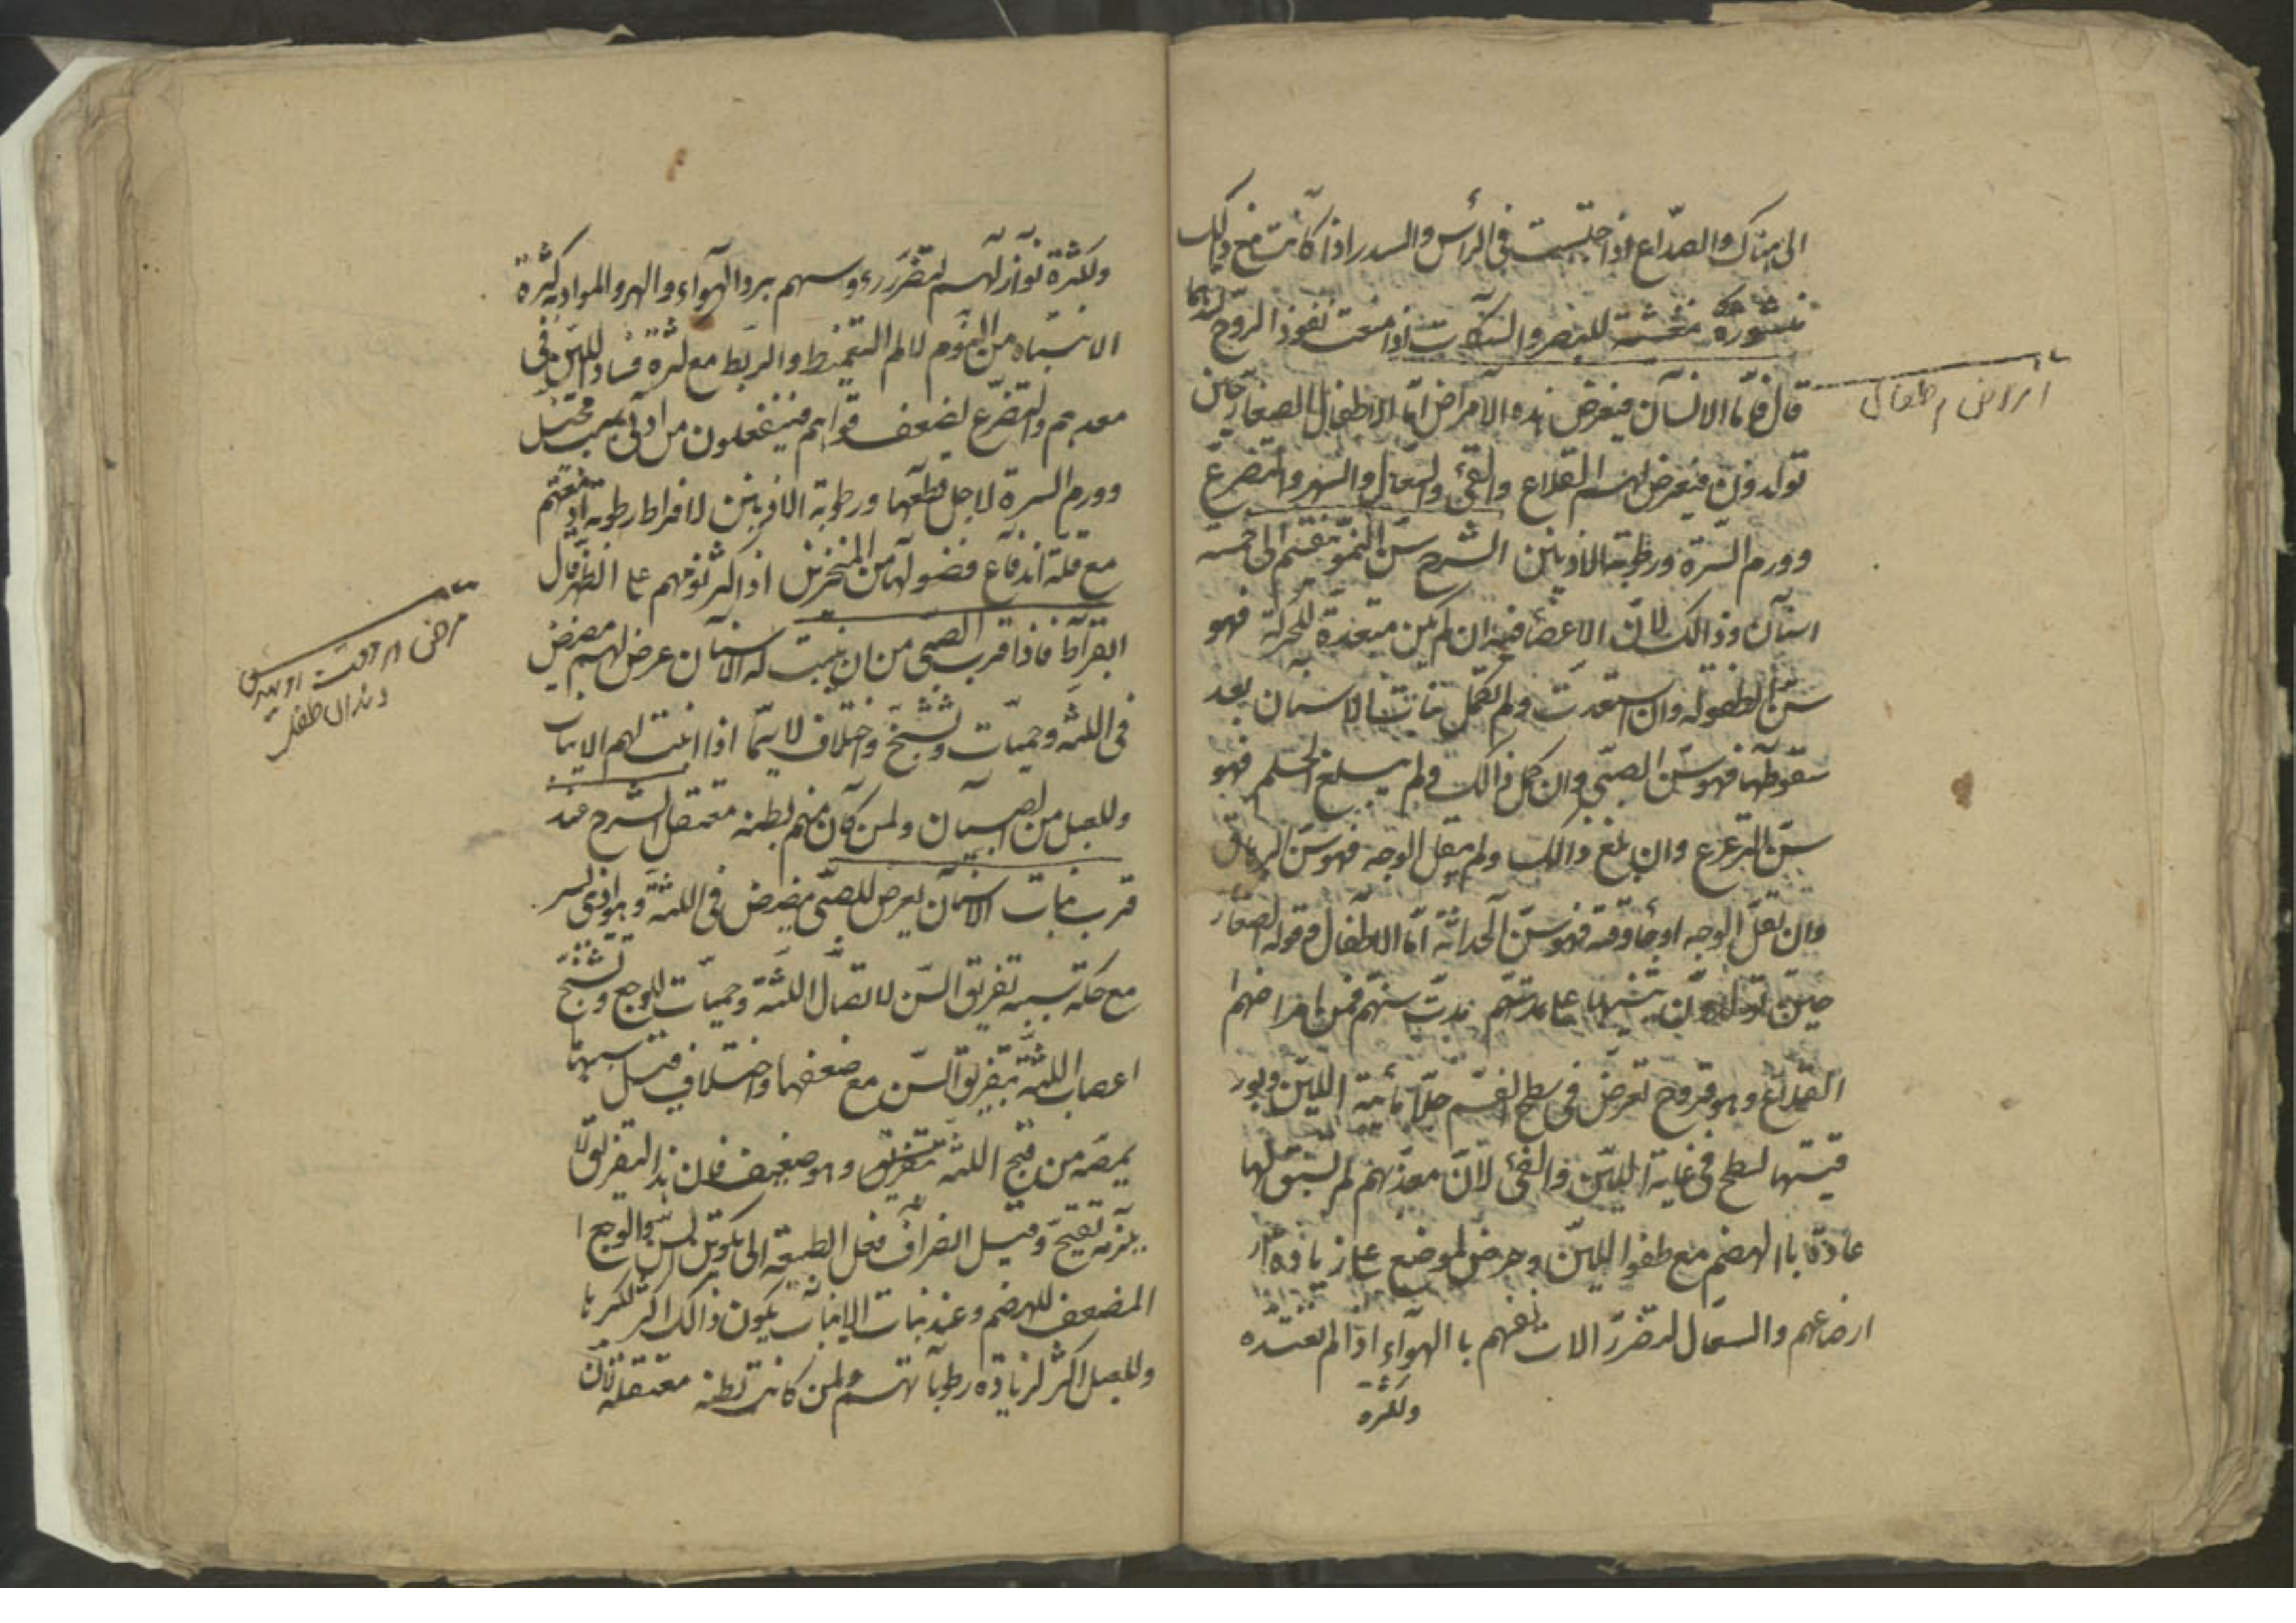 الى هناك والصداع اذا احتبست فى الرأس والسدر اذا كانت مع ذلك
مشوره مغشية للبصر والسكات اذا منعت نفوذ الروح
امراض اطفال
قال فاما الانسان فيعرض هذه الامراض اما الاطفال الصغار حين
تولدون فيعرض لهم القلاع والقئ والسعال والسهر والتفزع
وورم السرة ورطوبة الاذنين الشرح سن النمو تقسم الى خمسة
اسنان وذالك لان الاعضا فيه ان لم يكن مستعدة للحركة فهو
سن الطفولة وان استعدت ولم تكمل نبات الاسنان بعد
سقوطها فهو سن الصبى وان كمل ذالك ولم يبلغ الحلم فهو
سن الترعرع وان بلغ ذالك ولم يبقل الوجه فهو سن الرهاق
وان بقل الوجه او جا وقته فهو سن الحداثة اما الاطفال وقوله الصغار
حين تولدون تنبيها على مدتهم سنهم فمن امراضهم
القلاع وهو قروح تعرض فى سطح الفم جلا مائية اللبن وبور
قيتها لسطح فى غاية اللين والقئ لان معدتهم لم تسبق لها
عادة با الهضم مع طفو اللبن وحرص المرضع على زيادة
ارضاعهم والسعال لتضرر الات نفسهم با الهواء اذا لم تعتده
ولكثرة
ولكثرة نوازلهم لتضرر رءوسهم ببرد الهواء والسهر والمواد به كثرة
الانتباه من النوم لالم التقميط والربط مع كثرة فساد اللبن فى
معدهم والتفزع لضعف قواهم فينفعلون من ادنى سبب مخيل
وورم السرة لاجل قطعها ورطوبة الاذنين لافراط رطوبة ادمغتهم
مع قلة اندفاع فضولها من المنخرين اذ اكثر نومهم على الظهر قال
ابقراط فاذا قرب الصبى من ان ينبت له الاسنان عرض لهم مضيض
مرض در وقت
دندان طفل
فى اللثه وحميات وتشنج واختلاف لاسيما اذا انبت لهم الانياب
وللعبل من الصبيان ولمن كان منهم بطنه معتقل الشرح عند
قرب نبات الاسنان يعرض للصبى مضيض فى اللثة وهو اذى يسير
مع حكة تسببه تفريق السن لاتصال اللثة وحميات للوجع وتشنج
اعصاب اللثة بتفريق السن مع ضعفها واختلاف قيل سببها
يمصه من قيح اللثه بتفريق وهو ضعيف فان هذا التفريق لا
يلزمه تقيح وقيل انصراف فعل الطبيعة الى تكوين السن والوجع
المضعف للهضم وعند نبات الانياب يكون ذالك اكثر لكبرها
وللعبل اكثر لزيادة رطوباتهم ولمن كانت بطنه معتقلة لان